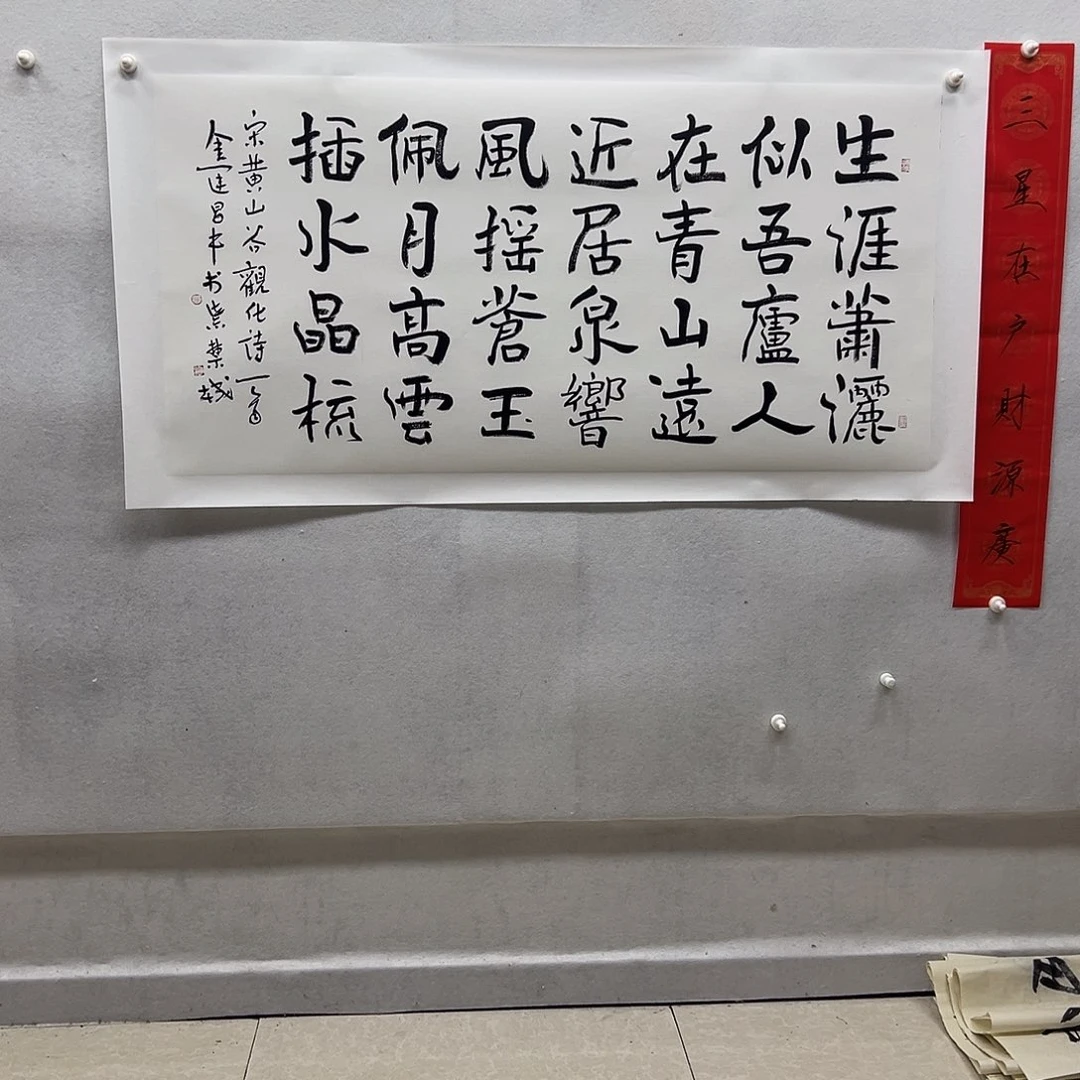 三星在户財源廣
生涯蕭灑
似吾廬人
在青山遠
近居泉響
風摇蒼玉
佩月高雲
插水晶梳
宋黄山谷觀化詩一首
金运昌书紫禁城